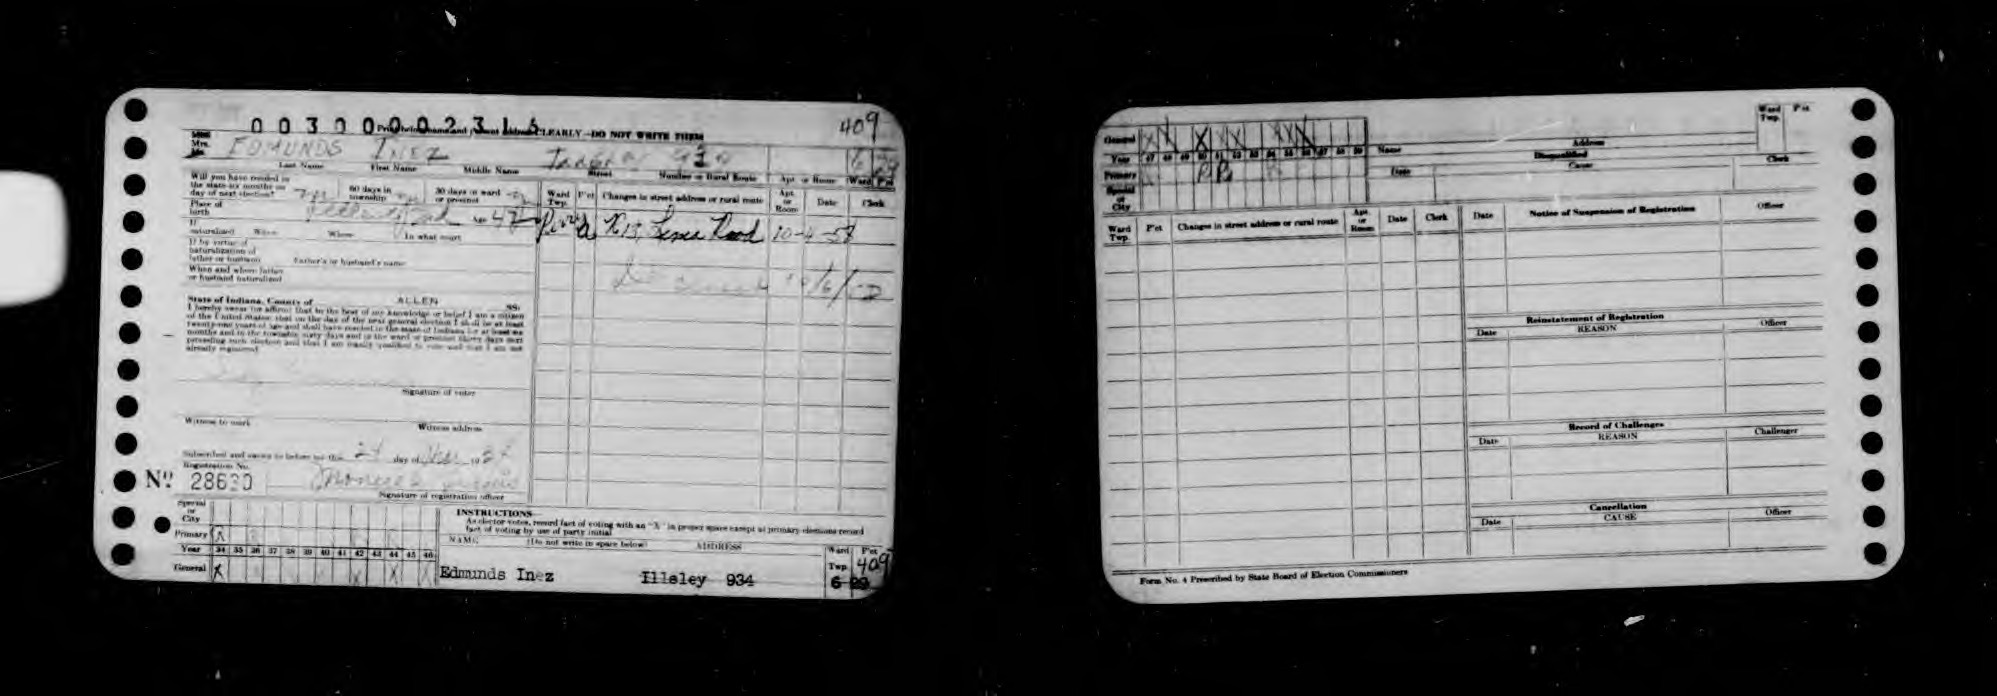 00300002316
Print below name and present address CLEARLY—DO NOT WRITE THEM
409
Miss
Mrs.
Mr.
EDMUNDS INEZ
6 29
Last Name First Name Middle Name Street Number or Rural Route Apt. or Room Ward P'ct
Will you have resided in
the state six months on
day of next election?
60 days in
township
30 days in ward
or precinct
Place of
birth
Age 47
If
naturalized When Where In what court
If by virtue of
naturalization of
father or husband Father's or husband's name
When and where father
or husband naturalized
State of Indiana, County of ALLEN SS:
I hereby swear (or affirm) that to the best of my knowledge or belief I am a citizen
of the United States; that on the day of the next general election I shall be at least
twenty-one years of age and shall have resided in the state of Indiana for at least six
months and in the township sixty days and in the ward or precinct thirty days next
preceding such election and that I am legally qualified to vote and that I am not
already registered.
Signature of voter
Witness to mark Witness address
Subscribed and sworn to before me this 24 day of 19
Registration No.
No. 28630
Signature of registration officer
Ward
Twp. P'ct Changes in street address or rural route Apt.
or
Room Date Clerk
R 13, Road 10-4-
Special
or
City
Primary X
Year 34 35 36 37 38 39 40 41 42 43 44 45 46
General X
INSTRUCTIONS
As elector votes, record fact of voting with an "X" in proper space except at primary elections record
fact of voting by use of party initial.
NAME (Do not write in space below) ADDRESS Ward
Twp. P'ct
409
Edmunds Inez Illsley 934 6 29
General X X X X X X X X
Year 47 48 49 50 51 52 53 54 55 56 57 58 59
Primary R R
Special
or
City
Name Address Ward
Twp. P'ct
Disqualified
Date Cause Clerk
Ward
Twp. P'ct Changes in street address or rural route Apt.
or
Room Date Clerk
Date Notice of Suspension of Registration Officer
Reinstatement of Registration
Date REASON Officer
Record of Challenges
Date REASON Challenger
Cancellation
Date CAUSE Officer
Form No. 4 Prescribed by State Board of Election Commissioners